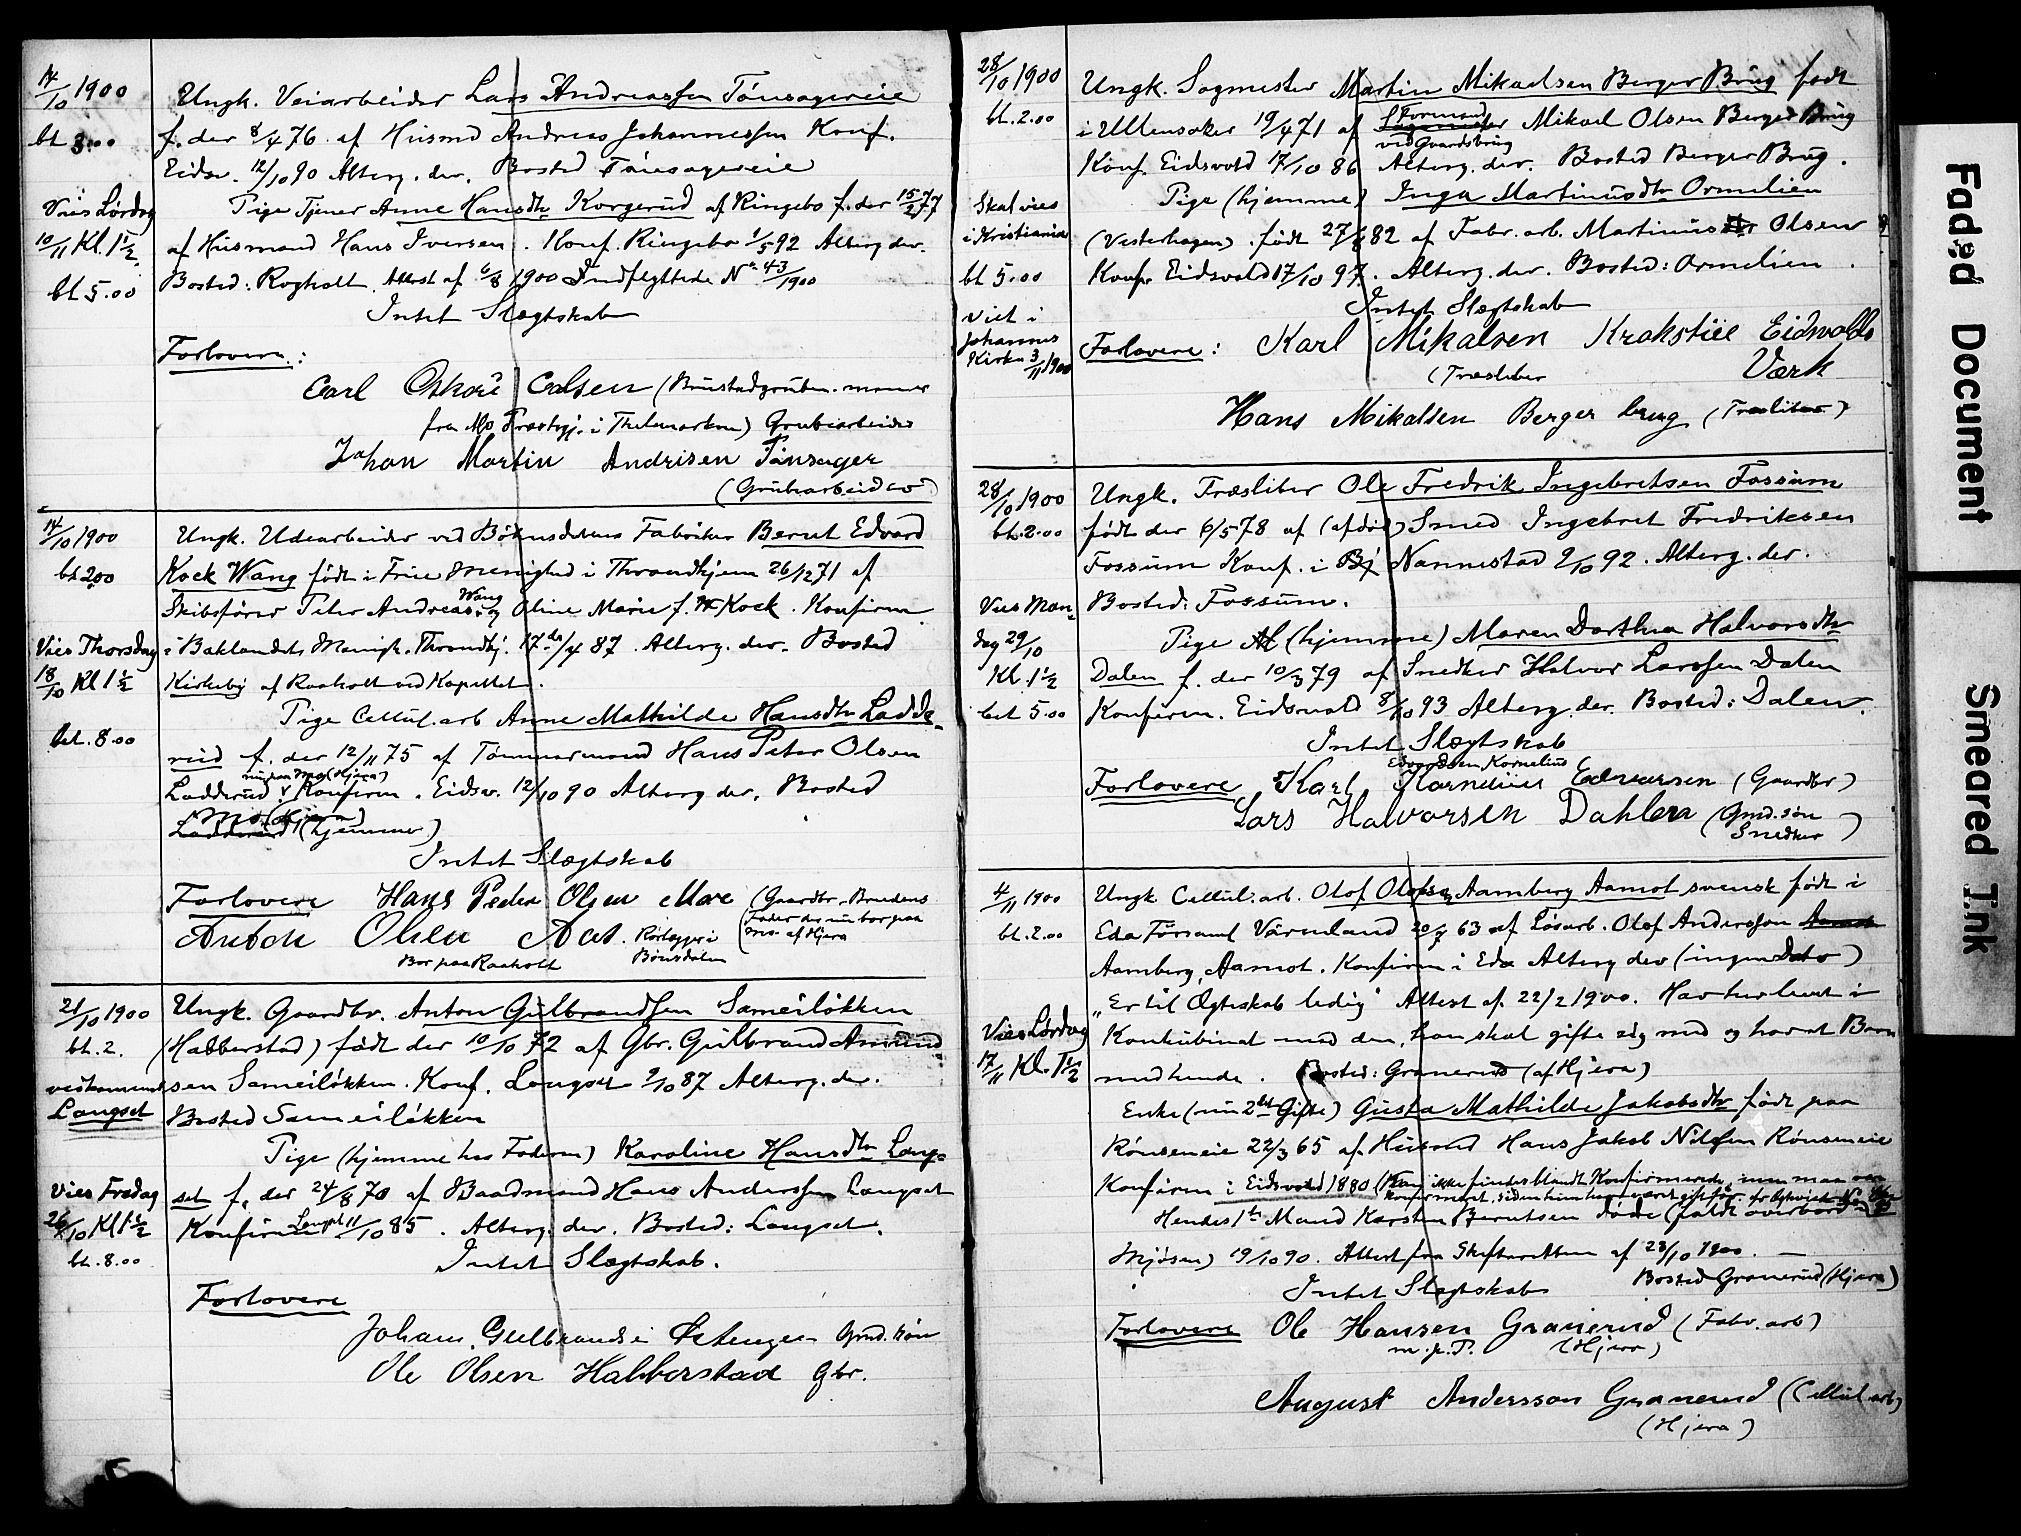 14/10 1900
bt 3.00
Ungk. Veiarbeider Lars Andreassen Tönsagereie
f. der 8/4 76 af Husmd Andreas Johannessen Konf.
Eidsv. 12/10 90 Alterg. der. Bosted Tönsagereie
Vies Lördag
10/11 Kl. 1 1/2
bt 5.00
Pige Tjener Anne Hansdtr Korgerud af Ringebo f. der 15/2 77
af Husmand Hans Iversen. Konf. Ringebo 1/5 92 Alterg der.
Bosted: Rogholt Attest af 6/8 1900 Indflyttede No 43/1900
Intet Slægtskab
Forlovere:
Carl Oskar Carlsen (Brustadgruben. mener
fra Mo Præstgj. i Thelemarken) Grubearbeider
Johan Martin Andrisen Tönsager
(Grubearbeider)
14/10 1900
bt 2.00
Ungk. Udearbeider ved Böhnsdalens Fabriker Bernt Edvard
Kock Wang födt i Frue Menighed i Throndhjem 26/12 71 af
Skibsförer Peter Andreas Wang og Oline Marie f. Kock. Konfirm.
Vies Thorsdag
18/10 Kl 1 1/2
bet. 8.00
i Baklandets Menigh. Throndhj. 17de/4 87. Alterg. der. Bosted
Kirkeby af Raaholt ved Kapellet.
Pige Cellul. arb Anne Mathilde Hansdtr Ladde-
rud f. der 12/11 75 af Tömmermand Hans Peter Olsen
nu paa Mo (Hjera)
Ladderud v Konfirm. Eidsv. 12/10 90 Alterg der. Bosted
Mo (Hjera)
Ladderud (hjemme)
Intet Slægtskab
Forlovere Hans Peder Olsen Moe (Gaardbr. Brudens
Fader der nu bor paa
Mo af Hjera
Anton Olsen Aas. Rörlægger i
Bor paa Raaholt Bönsdalen
21/10 1900
bt. 2.
vedkommende
Langset
Ungk. Gaardbr. Anton Gulbrandsen Sameilökken
(Habberstad) födt der 10/10 72 af Gbr. Gulbrand Amund
sen Sameilökken. Konf. Langset 9/10 87 Alterg. der.
Bosted Sameilökken
Pige (hjemme hos Faderen) Karoline Hansdtr Lang-
Vies Fredag
26/10 Kl 1 1/2
bt. 8.00
set f. der 24/8 70 af Baadmand Hans Anderssen Langset
Konfirm Langset 11/10 85. Alterg. der. Bosted: Langset.
Intet Slægtskab.
Forlovere
Johan Gulbrandsen Gmd. sön
Ole Olsen Habberstad Gbr.
28/10 1900
bt. 2.00
Ungk. Sagmester Martin Mikaelsen Berger Brug födt
i Ullensaker 19/4 71 af Formand ved Gaardsbrug Mikael Olsen Berger Brug
Konf. Eidsvold 17/10 86 Alterg. der. Bosted Berger Brug.
Skal vies
i Kristiania
bt 5.00
viet i
Johannes
Kirke 3/11 1900
Pige (hjemme) Inga Martinusdtr Ormelien
(Vesterhagen). födt 27/ 82 af Fabr. arb. Martinus Olsen
Konf. Eidsvold 17/10 97. Alterg. der. Bosted: Ormelien.
Intet Slægtskab
Forlovere: Karl Mikalsen Krakstiee Eidsvolds
(Træsliber Værk
Hans Mikalsen Berger brug (Træsliber)
28/10 1900
bt. 2.00
Ungk. Træsliber Ole Fredrik Ingebretsen Fossum
födt der 6/5 78 af (afdöd) Smed Ingebret Fredriksen
Fossum Konf. i Nannestad 9/10 92. Alterg. der.
Vies Man-
dag 29/10
Kl. 1 1/2
bet 5.00
Bosted: Fossum.
Pige (hjemme) Maren Dorthea Halvorsdtr
Dalen f. der 10/3 79 af Snedker Halvor Larssen Dalen
Konfirm. Eidsvold 8/10 93 Alterg. der. Bosted: Dalen.
Intet Slægtskab
Edvardsen, Kornelius
Forlovere Karl Kornelius Edvarsen (Gaardbr)
Lars Halvorsen Dahlen (Gmd. sön
Snedker)
4/11 1900
bt. 2.00
Ungk Cellul. arb. Olof Olofsen Aamberg Aamot svensk födt i
Eda Församl Värmland 20/7 63 af Lösarb. Olof Andersson
Aamberg, Aamot. Konfirm i Eda Alterg der (ingen Dato)
"Er til Ægteskab ledig" Attest af 22/2 1900. Har her levet i
Vies Lördag
17/11 Kl. 1 1/2
Konkubinat med den, han skal gifte sig med og har et Barn
med hende. Bosted: Granerud (af Hjera)
Enke (nu 2det Gifte) Gusta Mathilde Jakobsdtr födt paa
Rönseneie 22/3 65 af Husmd Hans Jakob Nilssen Rönseneie
Konfirm i Eidsvold 1880 (Kan ikke findes blandt Konfirmerede, men maa være
konfirmeret, siden hun har været gift för.
Hendes 1ste Mand Karsten Berntsen döde (faldt overbord
Mjösen) 19/10 90. Attest fra Skifteretten af 23/10 1900. —
Intet Slægtskab Bosted Granerud (Hjera)
Forlovere Ole Hansen Granerud (Fabr. arb)
m. p. P. (Hjera)
August Andersson Granerud (Cellul arb)
(Hjera)
Faded Document
Smeared Ink